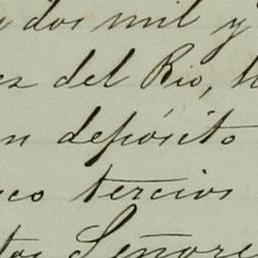 dos mil y
ez del Rio,
n depósito
co tercios
tos Señore